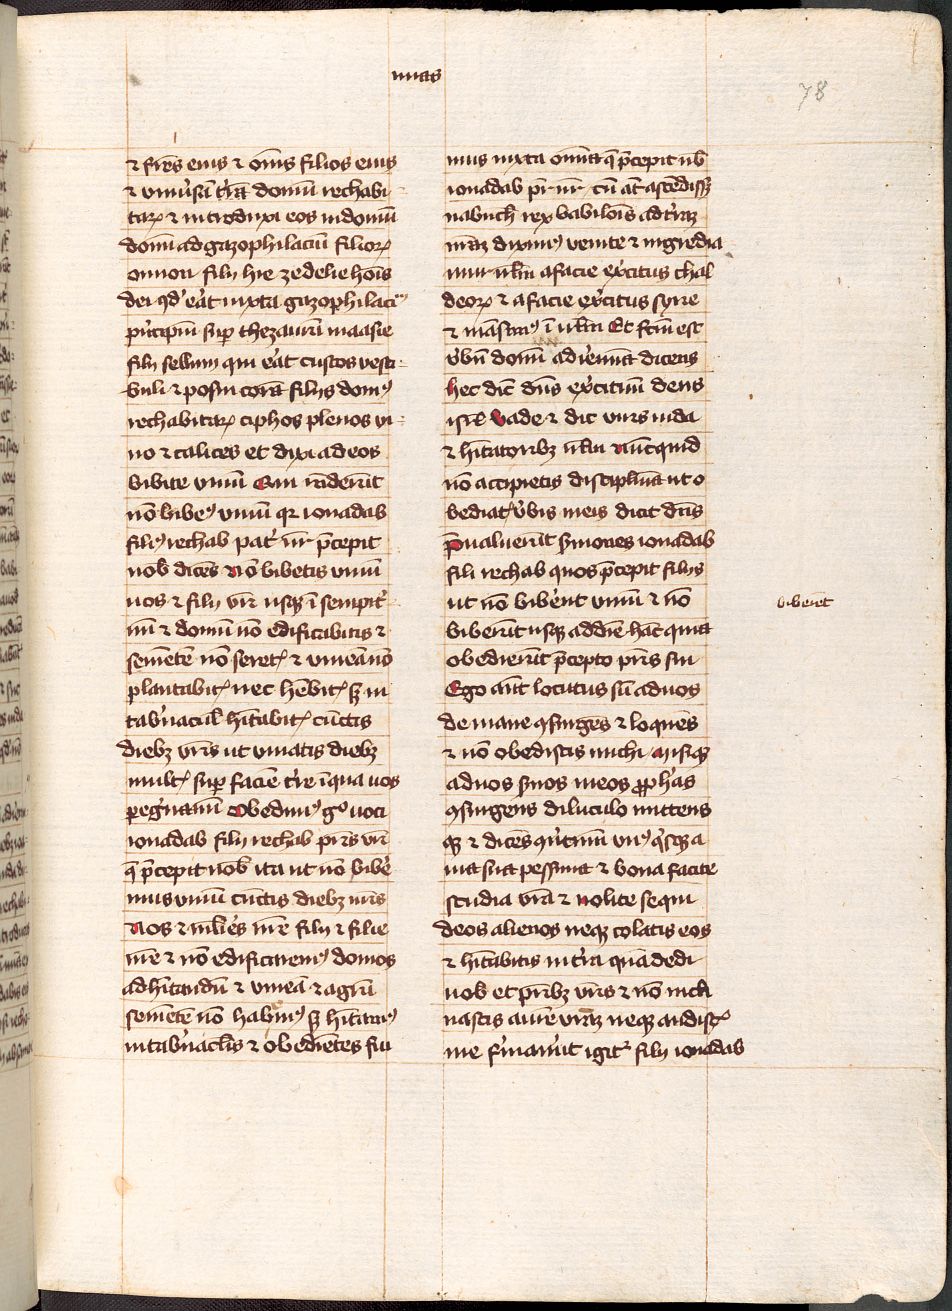 mias
78
⁊ fr̄es eius ⁊ om̄s filios eius
⁊ vniu͛sā t͛rā domū rechabi
taꝝ ⁊ introduxi eos in domū
domī ad gazophilaciū filioꝝ
onnori filij hie zedelie hoīs
dei qd' e͛at iuxta gazophilaciꝰ
pͥncipm̄ suꝑ thezaurū maasie
filij sellum qui e͛at custos vesti
buli ⁊ posui corā filijs domꝰ
rechabitaꝝ ciphos plenos vi
no ⁊ calices et dixi ad eos
bibite vinū Qui rn̄derūt
nō bibemꝰ vinū qꝛ ionadab
filiꝰ rechab pat͛ nr̄ p̄cepit
nob̄ dicēs Nō bibetis vinū
uos ⁊ filij vr̄i usqꝫ ī sempit͛
nū ⁊ domū nō edificabitis ⁊
semētē nō seretꝭ ⁊ vineā nō
plantabitꝭ nec hēbitꝭ sꝫ in
tab͛nacul̄ hītabitꝭ cūctis
diebꝫ vr̄is ut viuatis diebꝫ
multꝭ suꝑ faciē t͛re ī qua uos
peg͛nam̄ī Obediuimꝰ gͦ uoci
ionadab filij rechab pr̄is nr̄i
q̄ p̄cepit nob̄ ita ut nō bibe͛
mus vinū cūctis diebꝫ nr̄is
Nos ⁊ ml̄ie͛s nr̄e filij ⁊ filie
nr̄e ⁊ nō edificaremꝰ domos
ad hītandū ⁊ vineā ⁊ agrū
semētē nō habuimꝰ sꝫ hītauimꝰ
in tab͛naclīs ⁊ obediētes fui
mus iuxta om̄ia q̄ p̄cepit nb̄
ionadab pr̄ nr̄ Cū aūt ascēdissꝫ
nabuch̄ rex babilōis ad t͛rāꝫ
nr̄aꝫ diximꝰ venite ⁊ ingredia
mur irl̄m a facie ex͛citus chal
deoꝝ ⁊ a facie ex͛citus syrie
⁊ māsimꝰ ī irl̄m Et fc̄m est
v͛bū domī ad ieremiā dicens
hec dic̄ dn̄s ex͛cituū deus
isrl̄ Vade ⁊ dic viris iuda
⁊ hītatoribꝫ irl̄m Nūcquid
nō accipietis disciplinā ut o
bediatꝭ v͛bis meis dicit dn̄s
P̄ualuerūt sermones ionadab
fili rechab quos p̄cepit filijs
ut nō bibe͛nt vinū ⁊ nō
biberūt usqꝫ ad diē hāc quia
obedierūt p̄cepto pr̄is sui
Ego aūt locutus sū ad uos
de mane ꝯsurges ⁊ loquēs
⁊ nō obedistis michi Misiqꝫ
ad uos s͛uos meos ꝓphās
ꝯsurgens diluculo mittens
qꝫ ⁊ dicēs ꝯu͛timī vnꝰ qͥsqꝫ a
uia sua pessima ⁊ bona facite
studia vr̄a ⁊ Nolite sequi
deos alienos neqꝫ colatis eos
⁊ hītabitis in t͛ra quā dedi
uob̄ et pr̄ibꝫ vr̄is ⁊ nō incli
nastis aurē vr̄aꝫ neqꝫ audistꝭ
me f͛maru͛nt igitᷣ filij ionadab
biberet